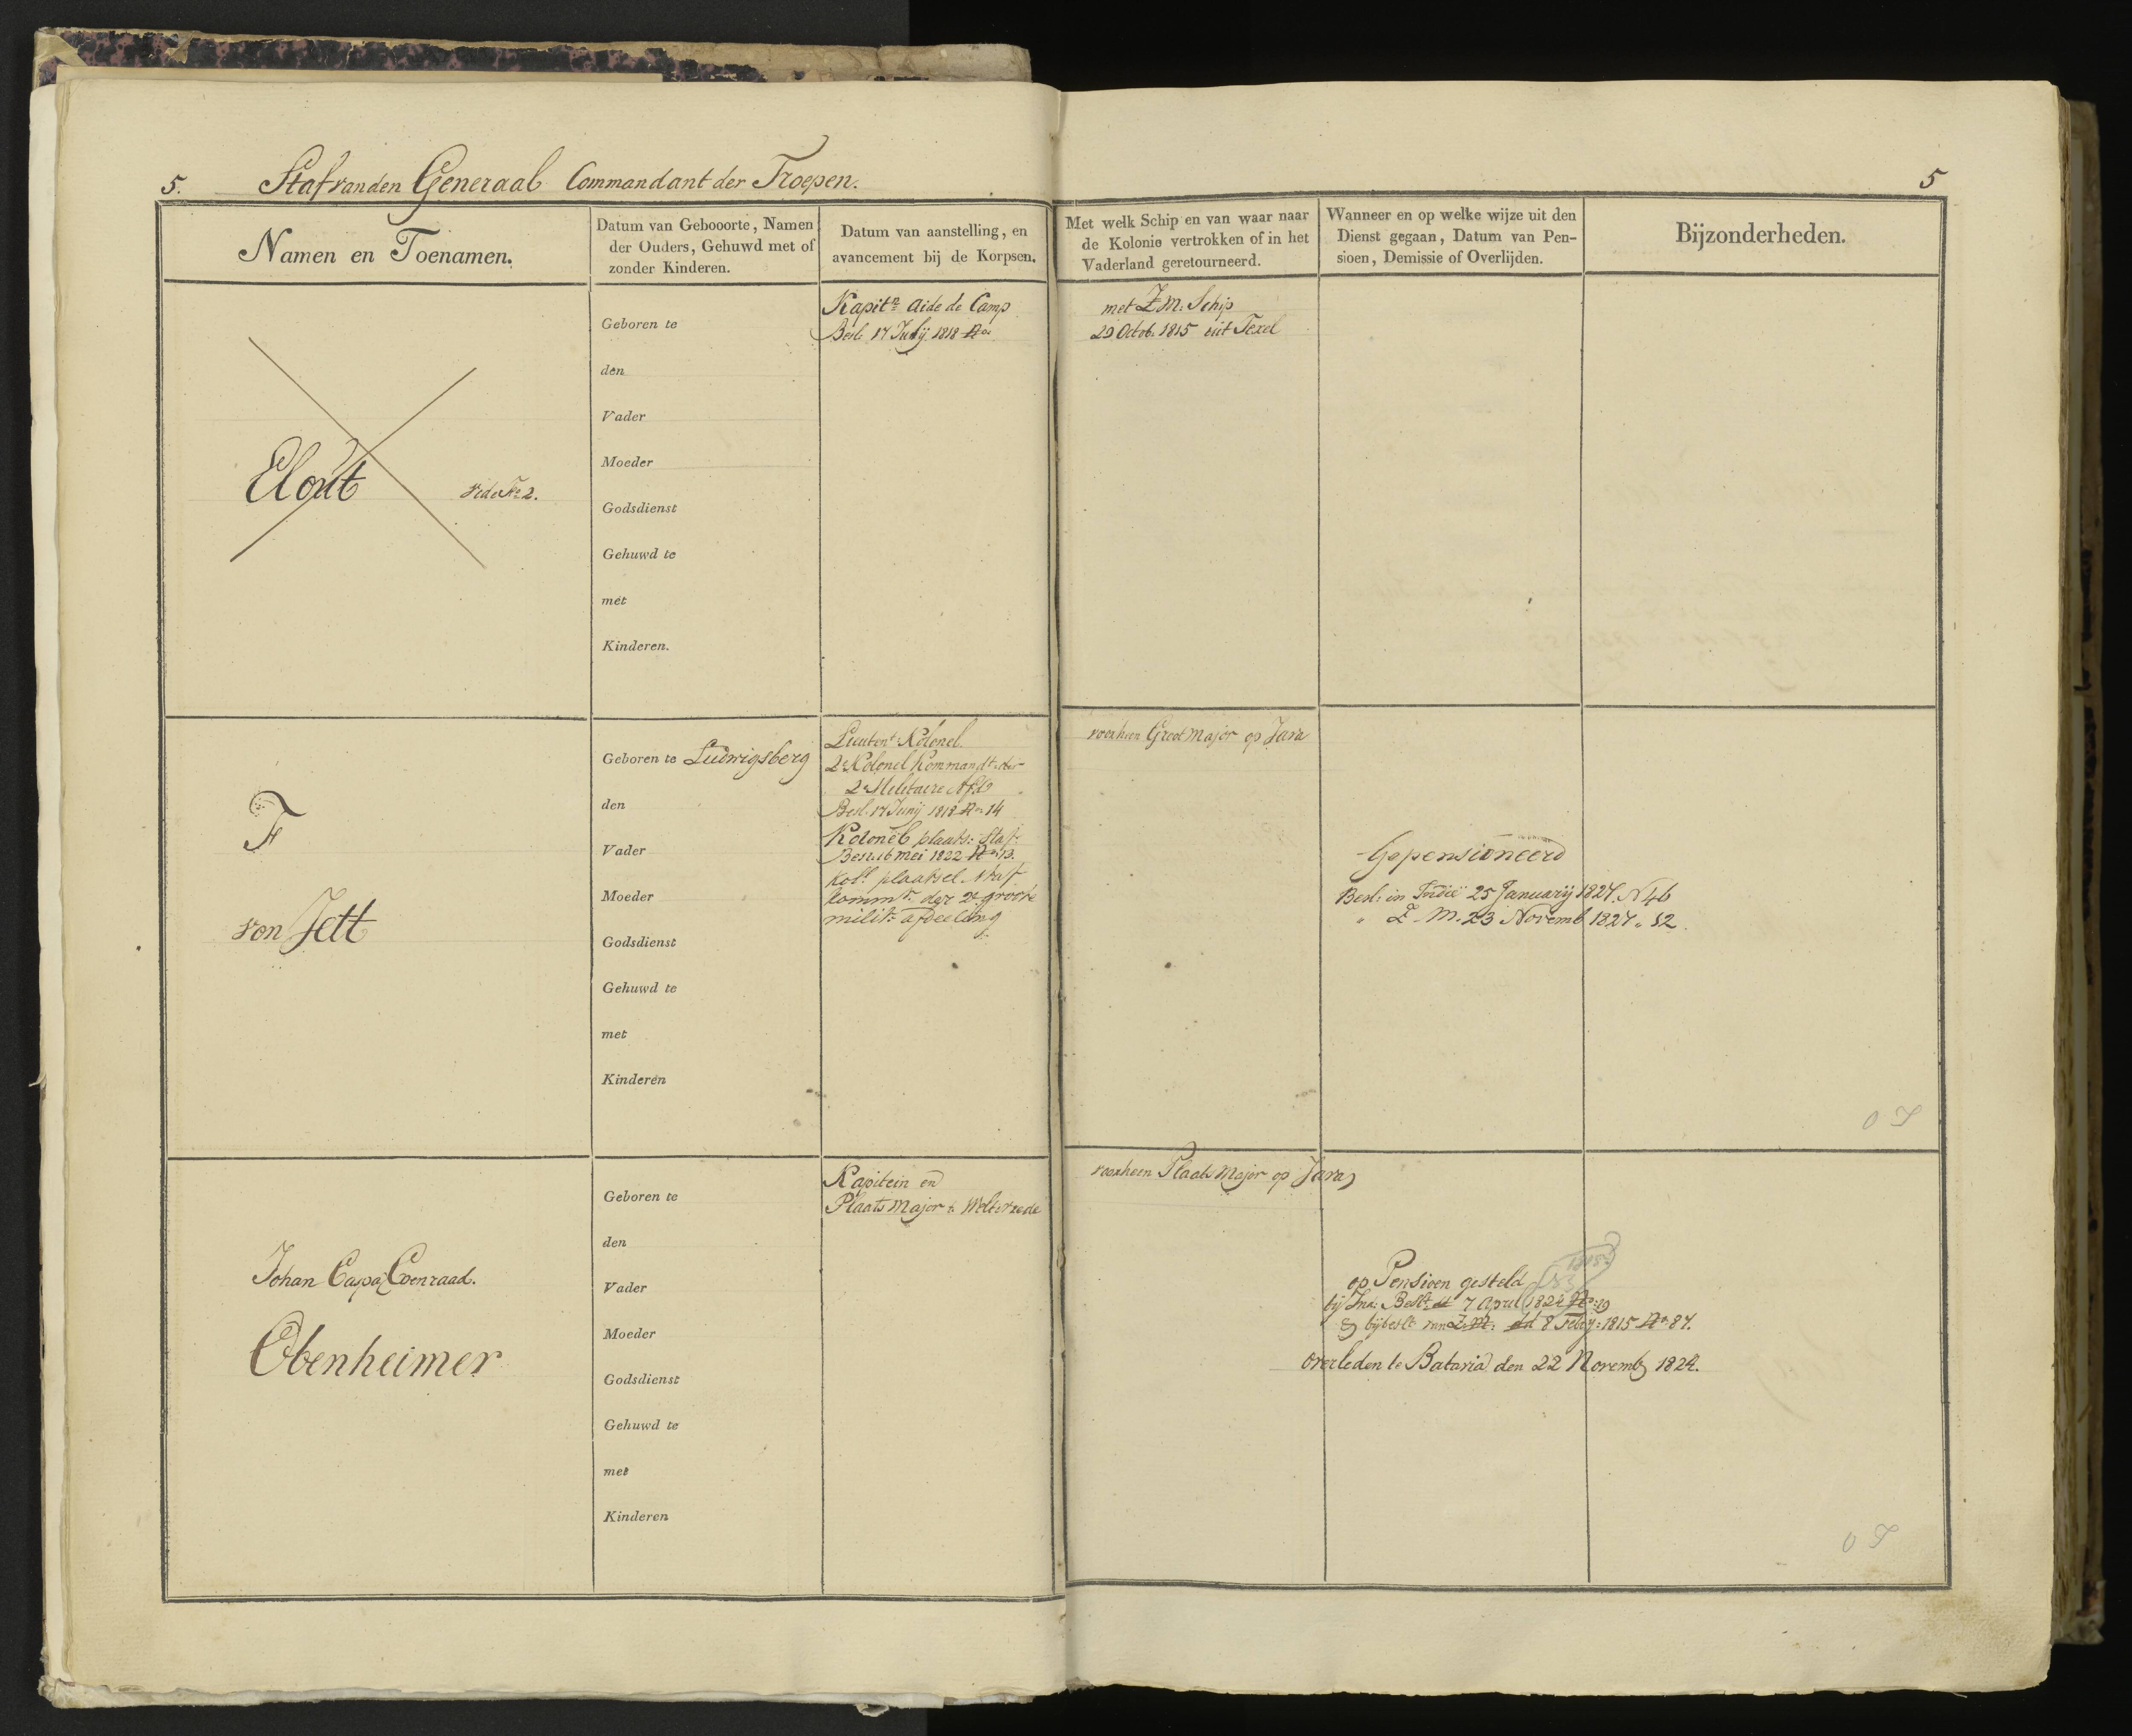 5. Staf van den Generaal Commandant der Troepen.
5
Namen en Toenamen.
Datum van Gebooorte, Namen
der Ouders, Gehuwd met of
zonder Kinderen.
Datum van aanstelling, en
avancement bij de Korpsen.
Met welk Schip en van waar naar
de Kolonie vertrokken of in het
Vaderland geretourneerd.
Wanneer en op welke wijze uit den
Dienst gegaan, Datum van Pen-
sioen, Demissie of Overlijden.
Bijzonderheden.
Elout vide No 2.
Geboren te
den
Vader
Moeder
Godsdienst
Gehuwd te
met
Kinderen.
Kapitn Aide de Camp
Besl. 17 Junij 1818 No
met Z.M. Schip
29 Octob. 1815 uit Texel
F
von Jett
Geboren te Ludwigsberg
den
Vader
Moeder
Godsdienst
Gehuwd te
met
Kinderen
Lieutent: Kolonel
2e Kolonel Kommandt: der
2e Militaire Afd
Besl. 17 Junij 1818 No 14
Kolonel plaats: Staf
Besl. 16 mei 1822 No 13.
Koll plaatsel. Staf
kommt der 2e groote
milit: afdeeling
voorheen Groot Major op Java
Gepensioneerd
Besl: in Indië 25 Januarij 1827. N 46
" Z. M. 23 Novemb 1827 " 82.
O I
Johan Caspar Coenraad.
Obenheimer
Geboren te
den
Vader
Moeder
Godsdienst
Gehuwd te
met
Kinderen
Kapitein en
Plaats Major te Weltevrede
voorheen Plaats Major op Java
op Pensioen gesteld
1815?
bij Ind: Beslt dd 7 April 1824 No: 19
& bij beslt van Z. M: dd 8 Febrij: 1815 No 87.
overleden te Batavia den 22 Novemb 1824.
O I